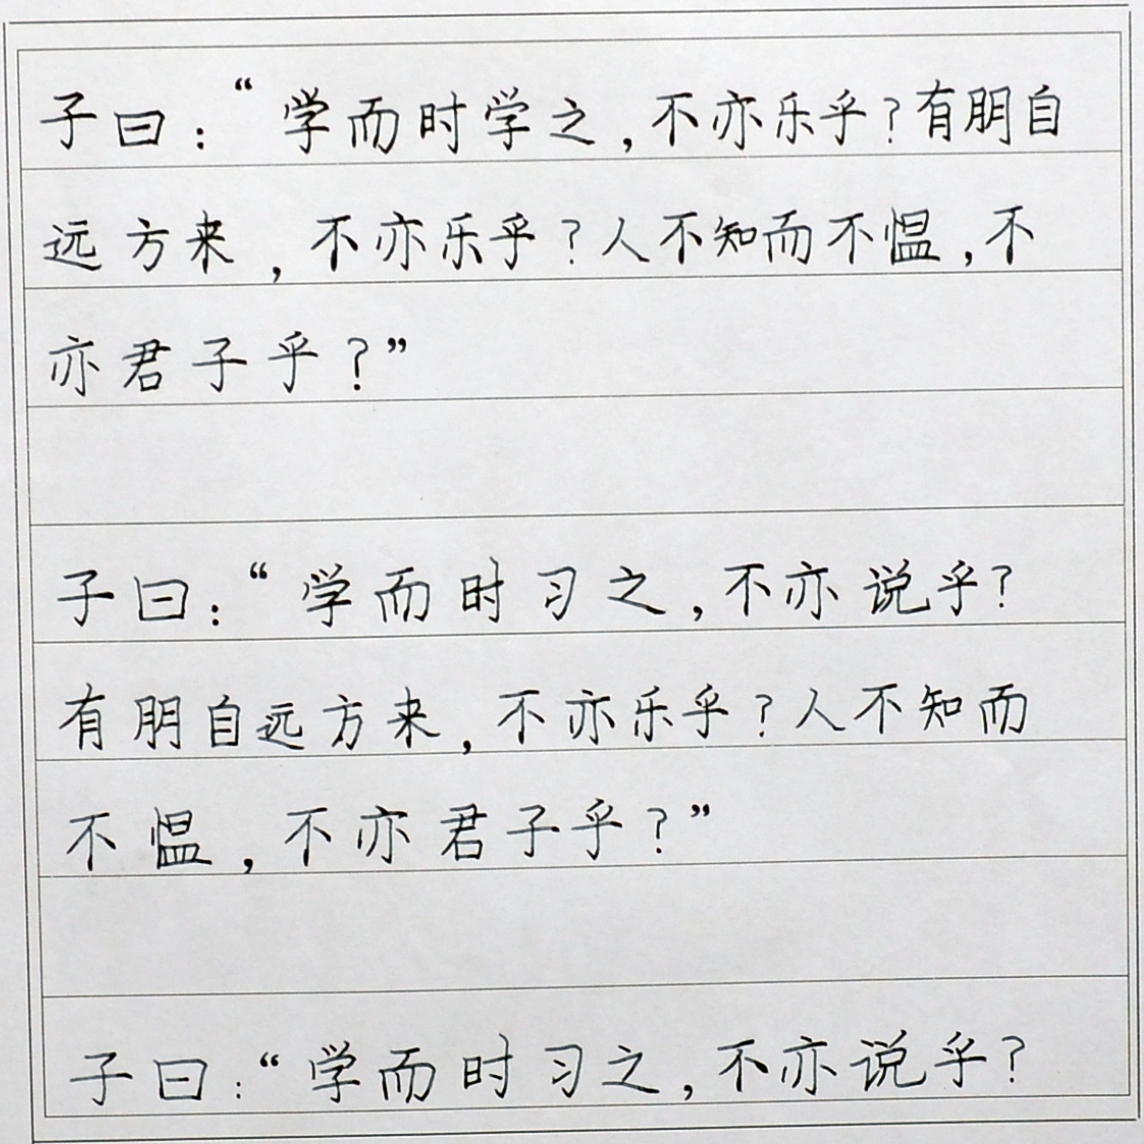 子曰：“学而时学之，不亦乐乎？有朋自
远方来，不亦乐乎？人不知而不愠，不
亦君子乎？”
子曰：“学而时习之，不亦说乎？
有朋自远方来，不亦乐乎？人不知而
不愠，不亦君子乎？”
子曰：“学而时习之，不亦说乎？